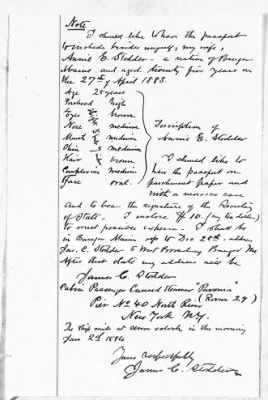 Note
I should like to have the passport
to include beside myself, my wife,
Annie E. Stodder – a native of Bangor
Maine and aged twenty five years on
the 27th of April 1883.
Age 25 years
Forehead high
Eyes brown
Nose medium
Mouth medium
Chin medium
Hair brown
Complexion medium
Face oval.
Description of
Annie E. Stodder
I should like to
have the passport on
parchment paper and
with a morocco case
And to bear the signature of the Secretary
of State. I enclose $10. (ten dollars)
to meet possible expense. I shall be
in Bangor Maine up to Dec 28th. address
Jas. C. Stodder 6 West Broadway Bangor Me
After that date my address will be
James C. Stodder
Cabin Passenger Cunard Steamer
Pier No 40 North River (Room 29)
New York N.Y.
The ship sails at seven oclock in the morning
Jan 2d 1884
Yours respectfully
James C. Stodder